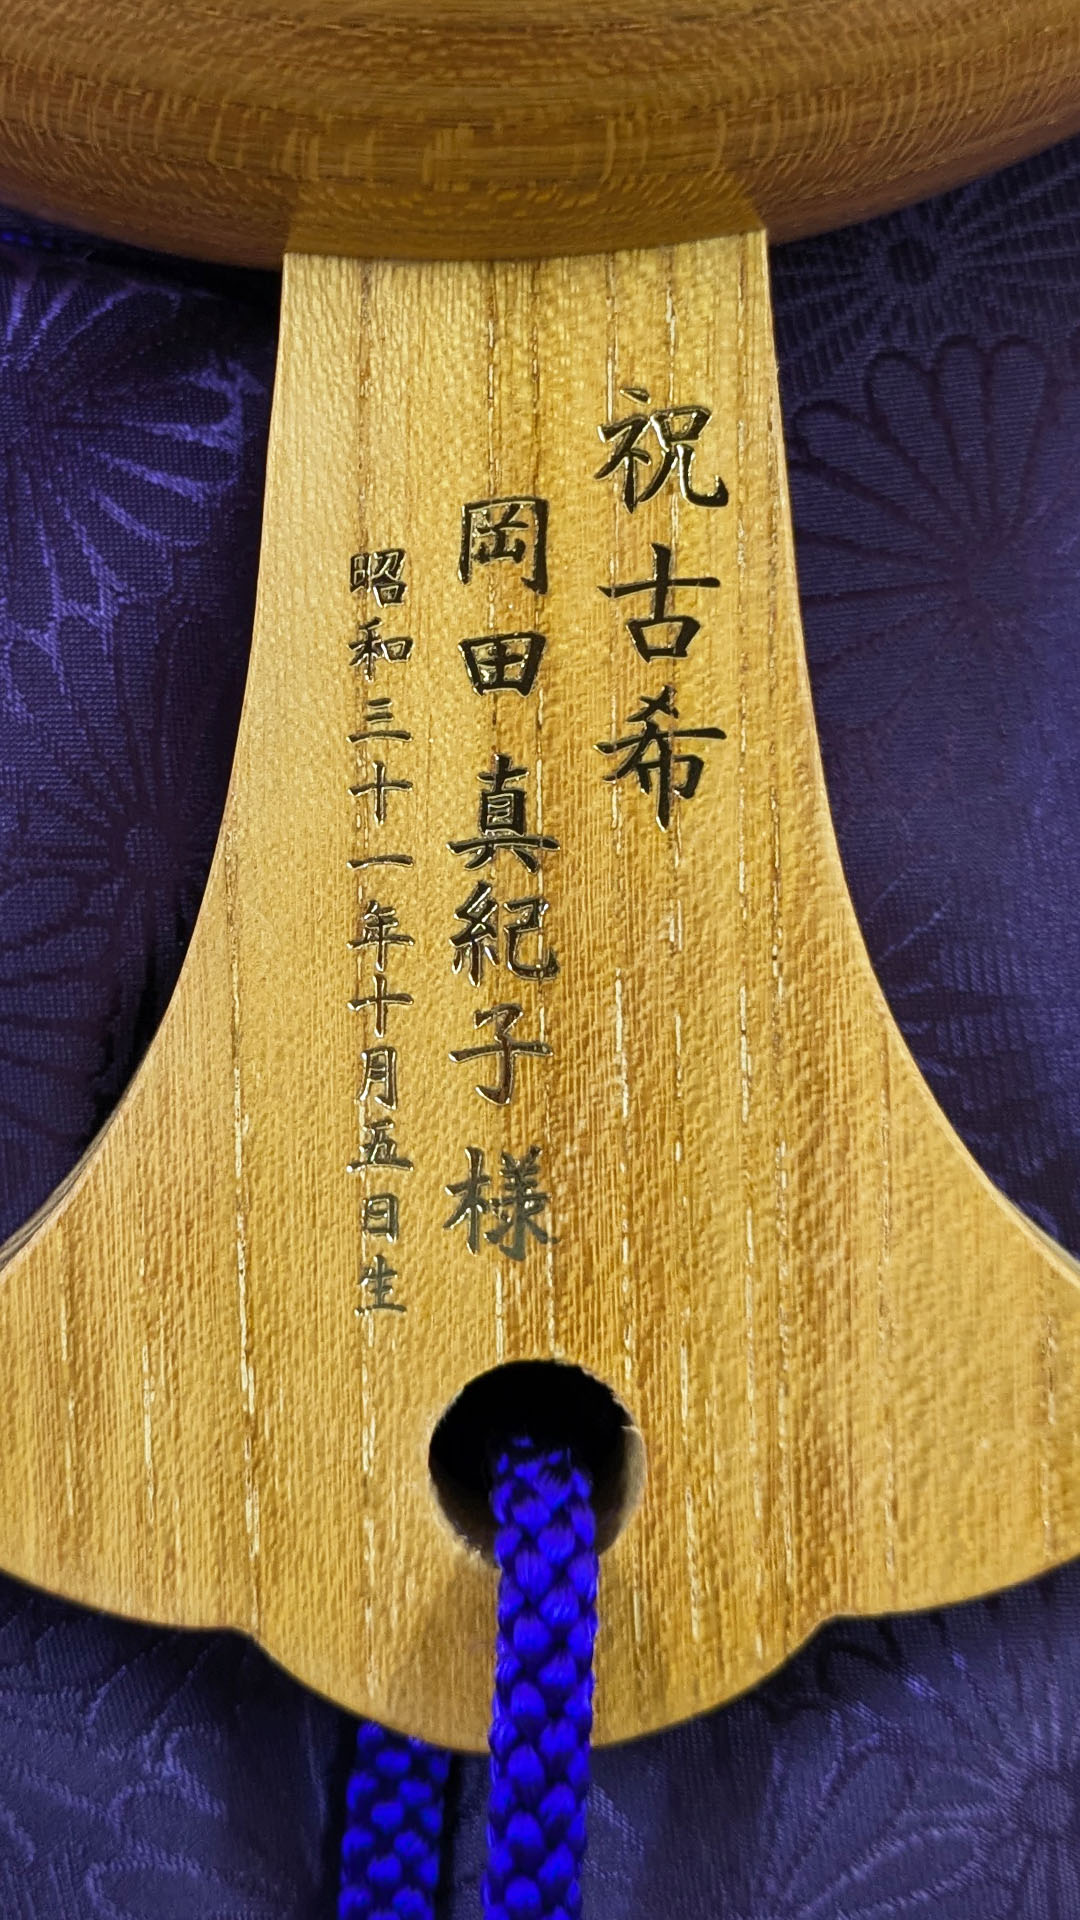 祝古希
岡田 真紀子 様
昭和三十一年十月五日生